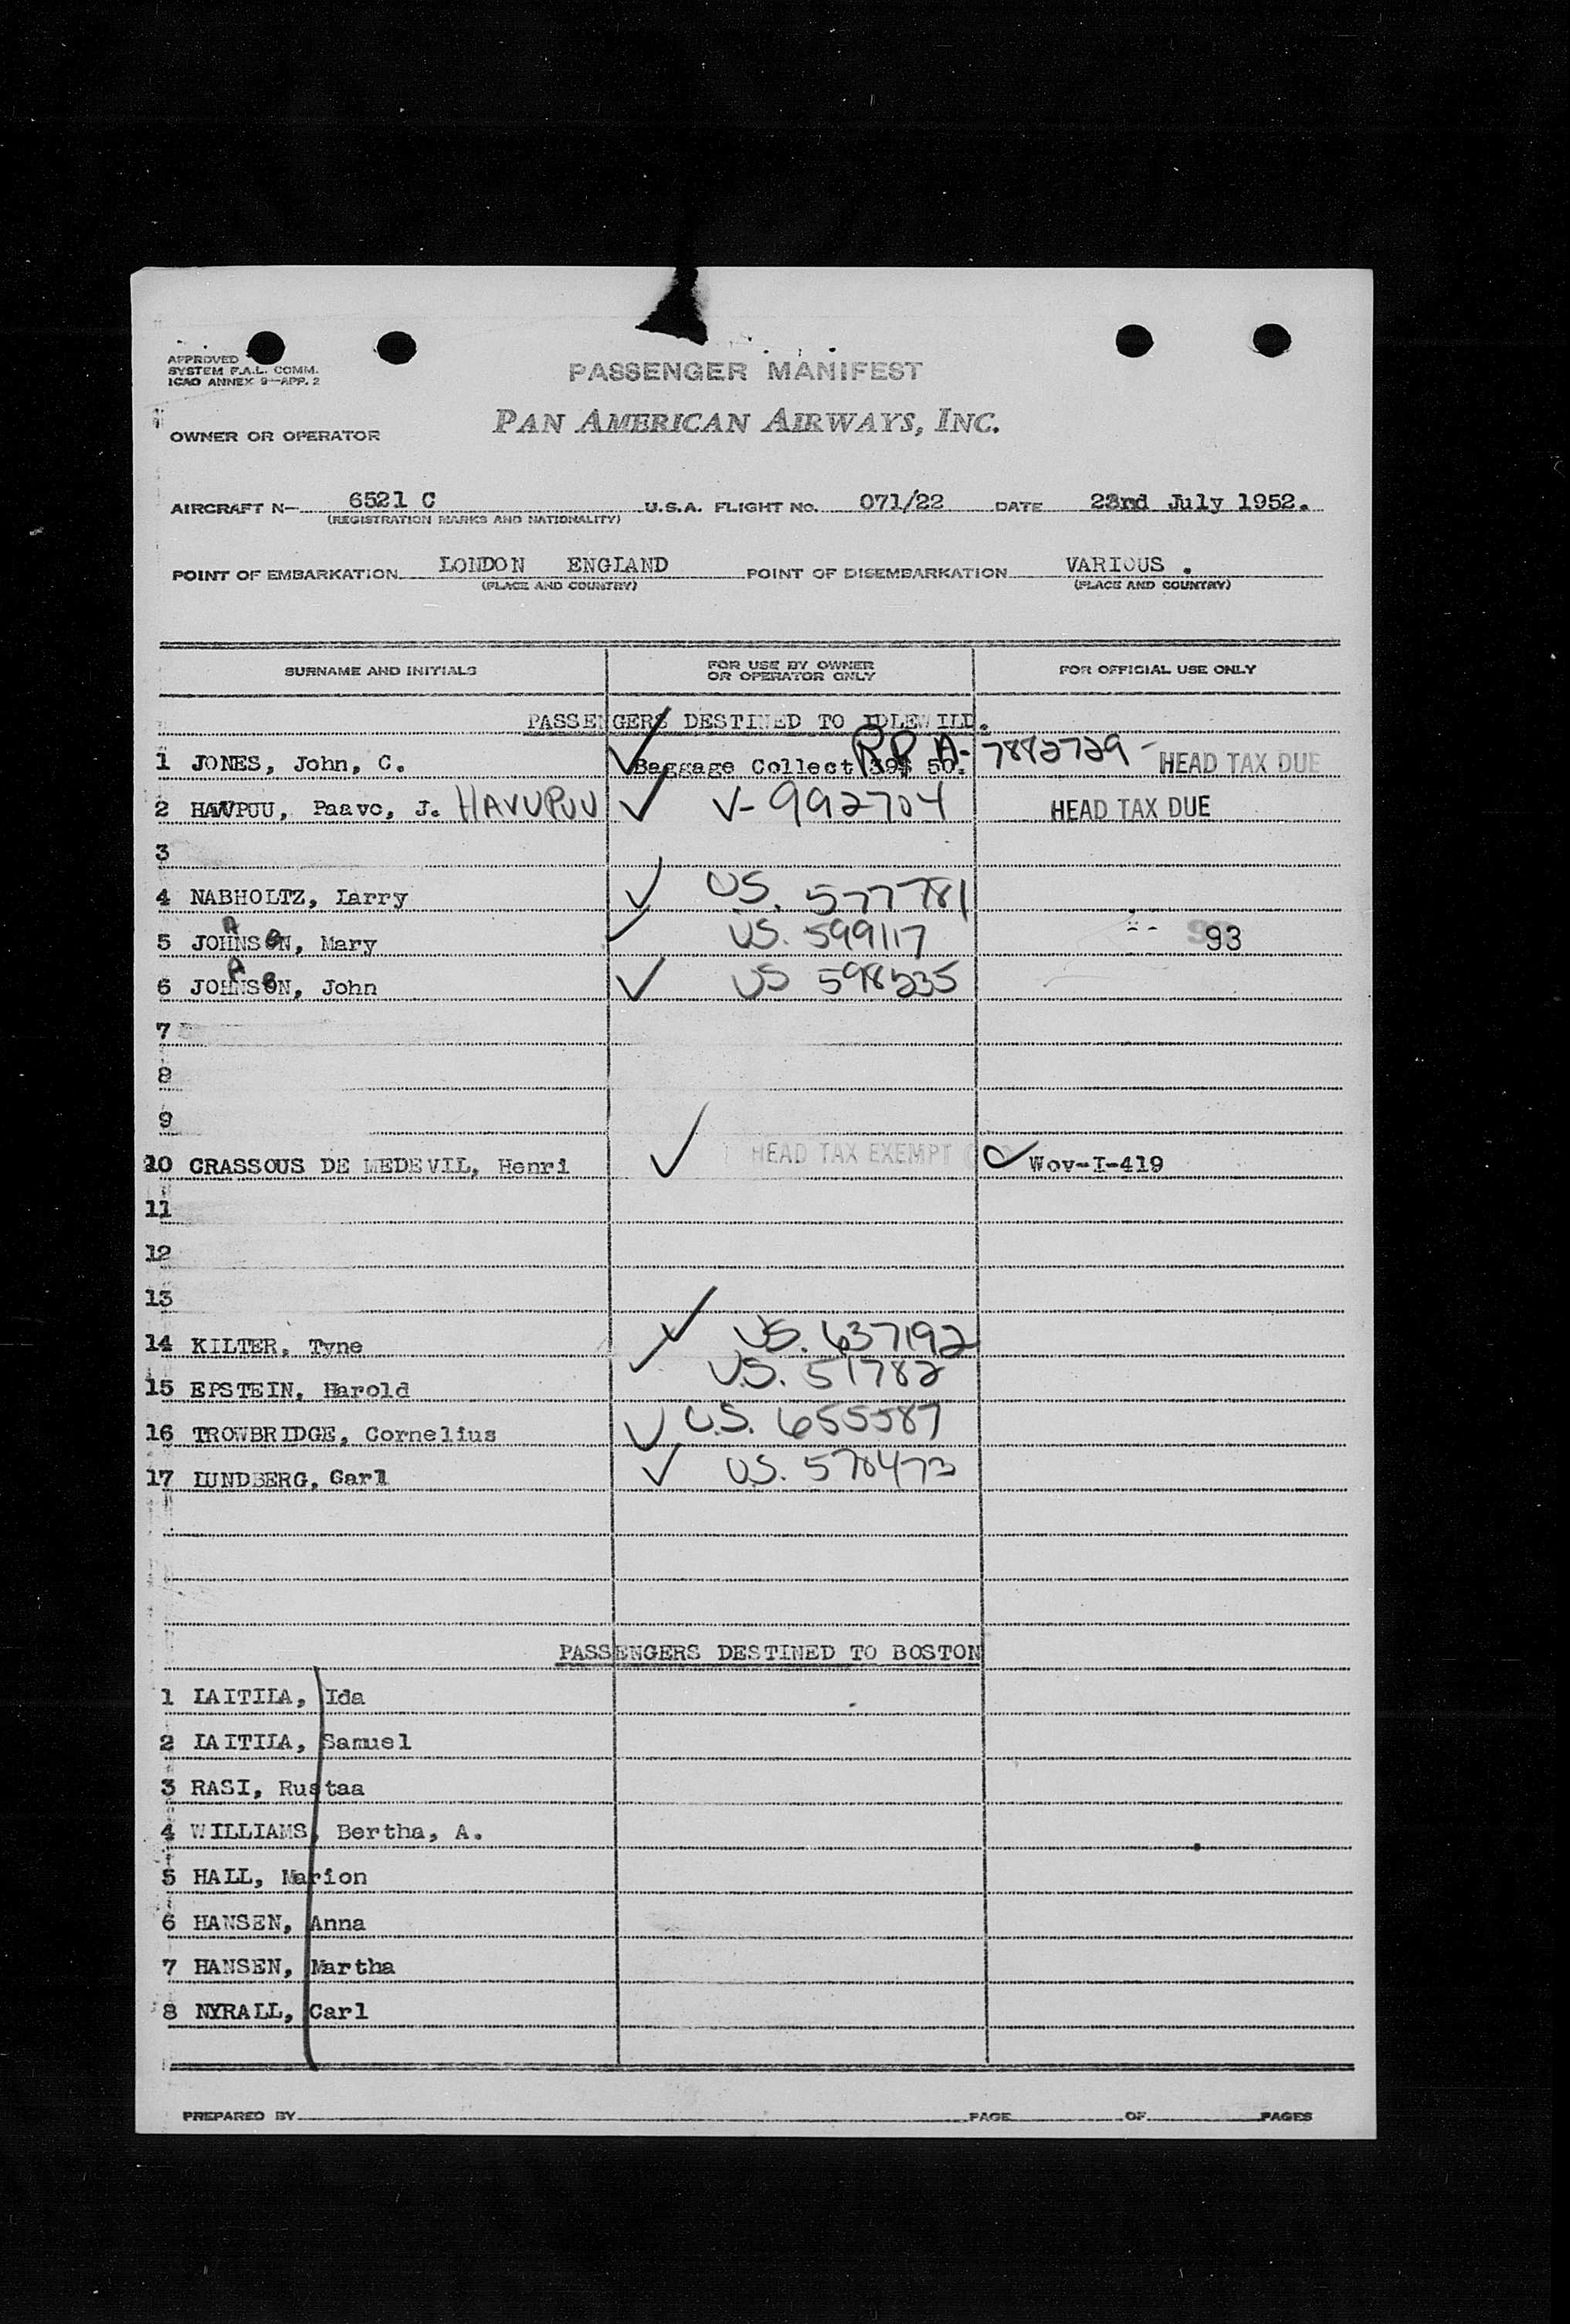 APPROVED
SYSTEM F.A.L. COMM.
ICAO ANNEX 9—APP. 2
PASSENGER MANIFEST
OWNER OR OPERATOR PAN AMERICAN AIRWAYS, INC.
AIRCRAFT N— 6521 C U.S.A. FLIGHT NO. 071/22 DATE 23rd July 1952.
(REGISTRATION MARKS AND NATIONALITY)
POINT OF EMBARKATION LONDON ENGLAND POINT OF DISEMBARKATION VARIOUS .
(PLACE AND COUNTRY) (PLACE AND COUNTRY)
SURNAME AND INITIALS FOR USE BY OWNER OR OPERATOR ONLY FOR OFFICIAL USE ONLY
PASSENGERS DESTINED TO IDLEWILD.
1 JONES, John, C. Baggage Collect 50. RP A- 7882729 - HEAD TAX DUE
2 Paavo, J. HAVUPUU V- 992704 HEAD TAX DUE
3
4 NABHOLTZ, Larry US. 577781
5 JOHNSON, Mary US. 599117 93
6 JOHNSON, John US 598235
7
8
9
10 CRASSOUS DE MEDEVIL, Henri HEAD TAX EXEMPT Wov-I-419
11
12
13
14 KILTER, Tyne US. 637192
15 EPSTEIN, Harold U.S. 51782
16 TROWBRIDGE, Cornelius U.S. 655587
17 LUNDBERG, Carl U.S. 570473
PASSENGERS DESTINED TO BOSTON
1 LAITILA, Ida
2 LAITILA, Samuel
3 RASI, Rustaa
4 WILLIAMS, Bertha, A.
5 HALL, Marion
6 HANSEN, Anna
7 HANSEN, Martha
8 NYRALL, Carl
PREPARED BY PAGE OF PAGES